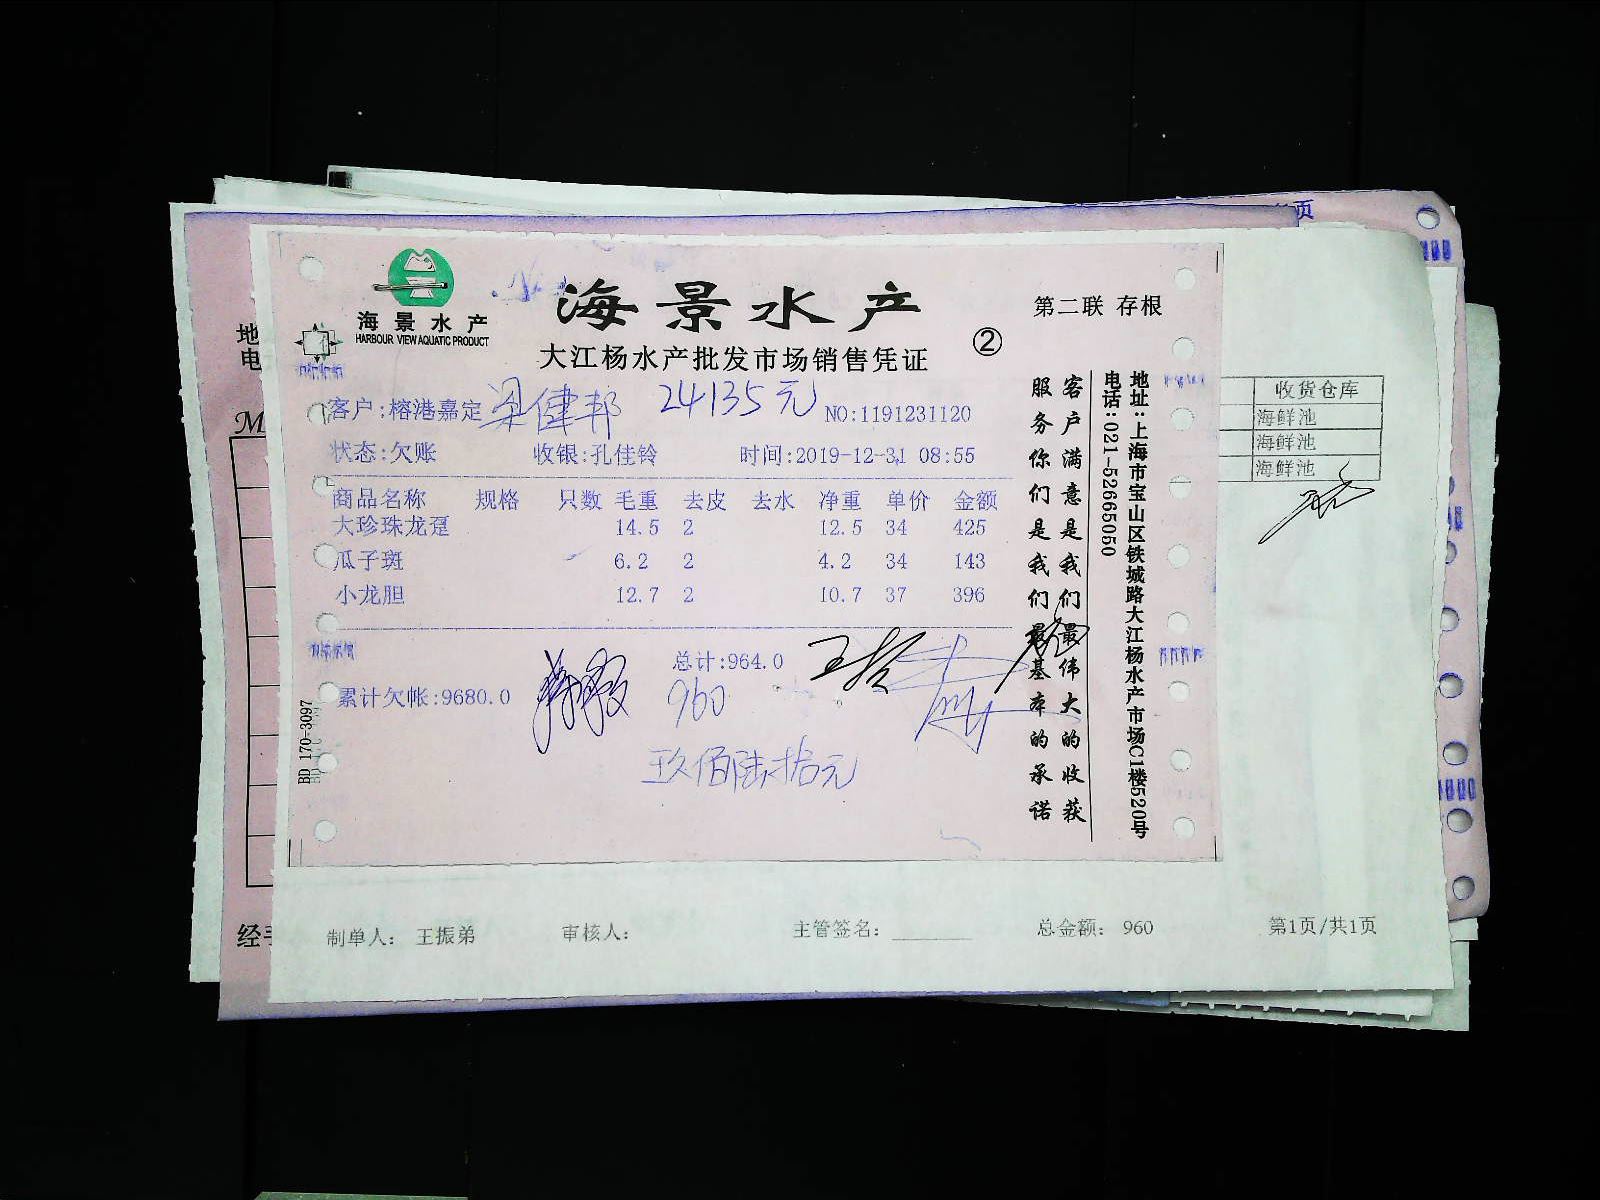 页
海景水产
HARBOUR VIEW AQUATIC PRODUCT
海景水产
大江杨水产批发市场销售凭证
②
第二联 存根
地
电
客户:榕港嘉定 梁健邦 24135元 NO:1191231120
状态:欠账 收银:孔佳铃 时间:2019-12-31 08:55
商品名称 规格 只数 毛重 去皮 去水 净重 单价 金额
大珍珠龙趸 14.5 2 12.5 34 425
瓜子斑 6.2 2 4.2 34 143
小龙胆 12.7 2 10.7 37 396
总计:964.0
累计欠帐:9680.0
960
玖佰陆拾元
BD 170-3097
客户满意是我们最伟大的收获
服务你们是我们最基本的承诺
地址:上海市宝山区铁城路大江杨水产市场C1楼520号
电话:021-52665050
收货仓库
海鲜池
海鲜池
海鲜池
M
经手
制单人: 王振弟 审核人: 主管签名: 总金额: 960 第1页/共1页